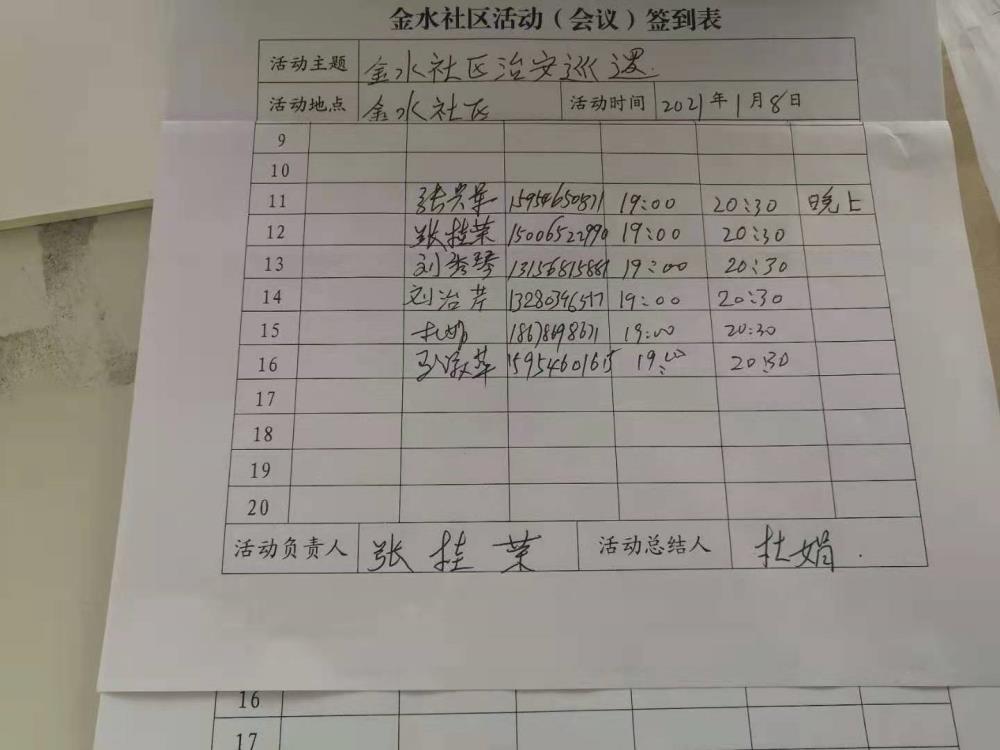 金水社区活动（会议）签到表
活动主题 金水社区治安巡逻
活动地点 金水社区 活动时间 2021年1月8日
9
10
11 张兴华 15954650871 19:00 20:30 晚上
12 张桂荣 15006522990 19:00 20:30
13 刘秀琴 13156815881 19:00 20:30
14 刘治芹 13280346517 19:00 20:30
15 杜娟 19:00 20:30
16 19:00 20:30
17
18
19
20
活动负责人 张桂荣 活动总结人 杜娟.
16
17